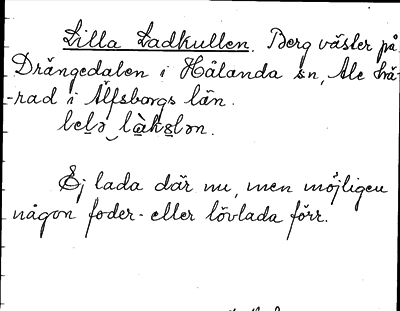 Lilla Ladkullen. Berg väster på
Drängedalen i Hålanda sn, Ale hä-
-rad i Älfsborgs län.
Ej lada där nu, men möjligen
någon foder- eller lövlada förr.